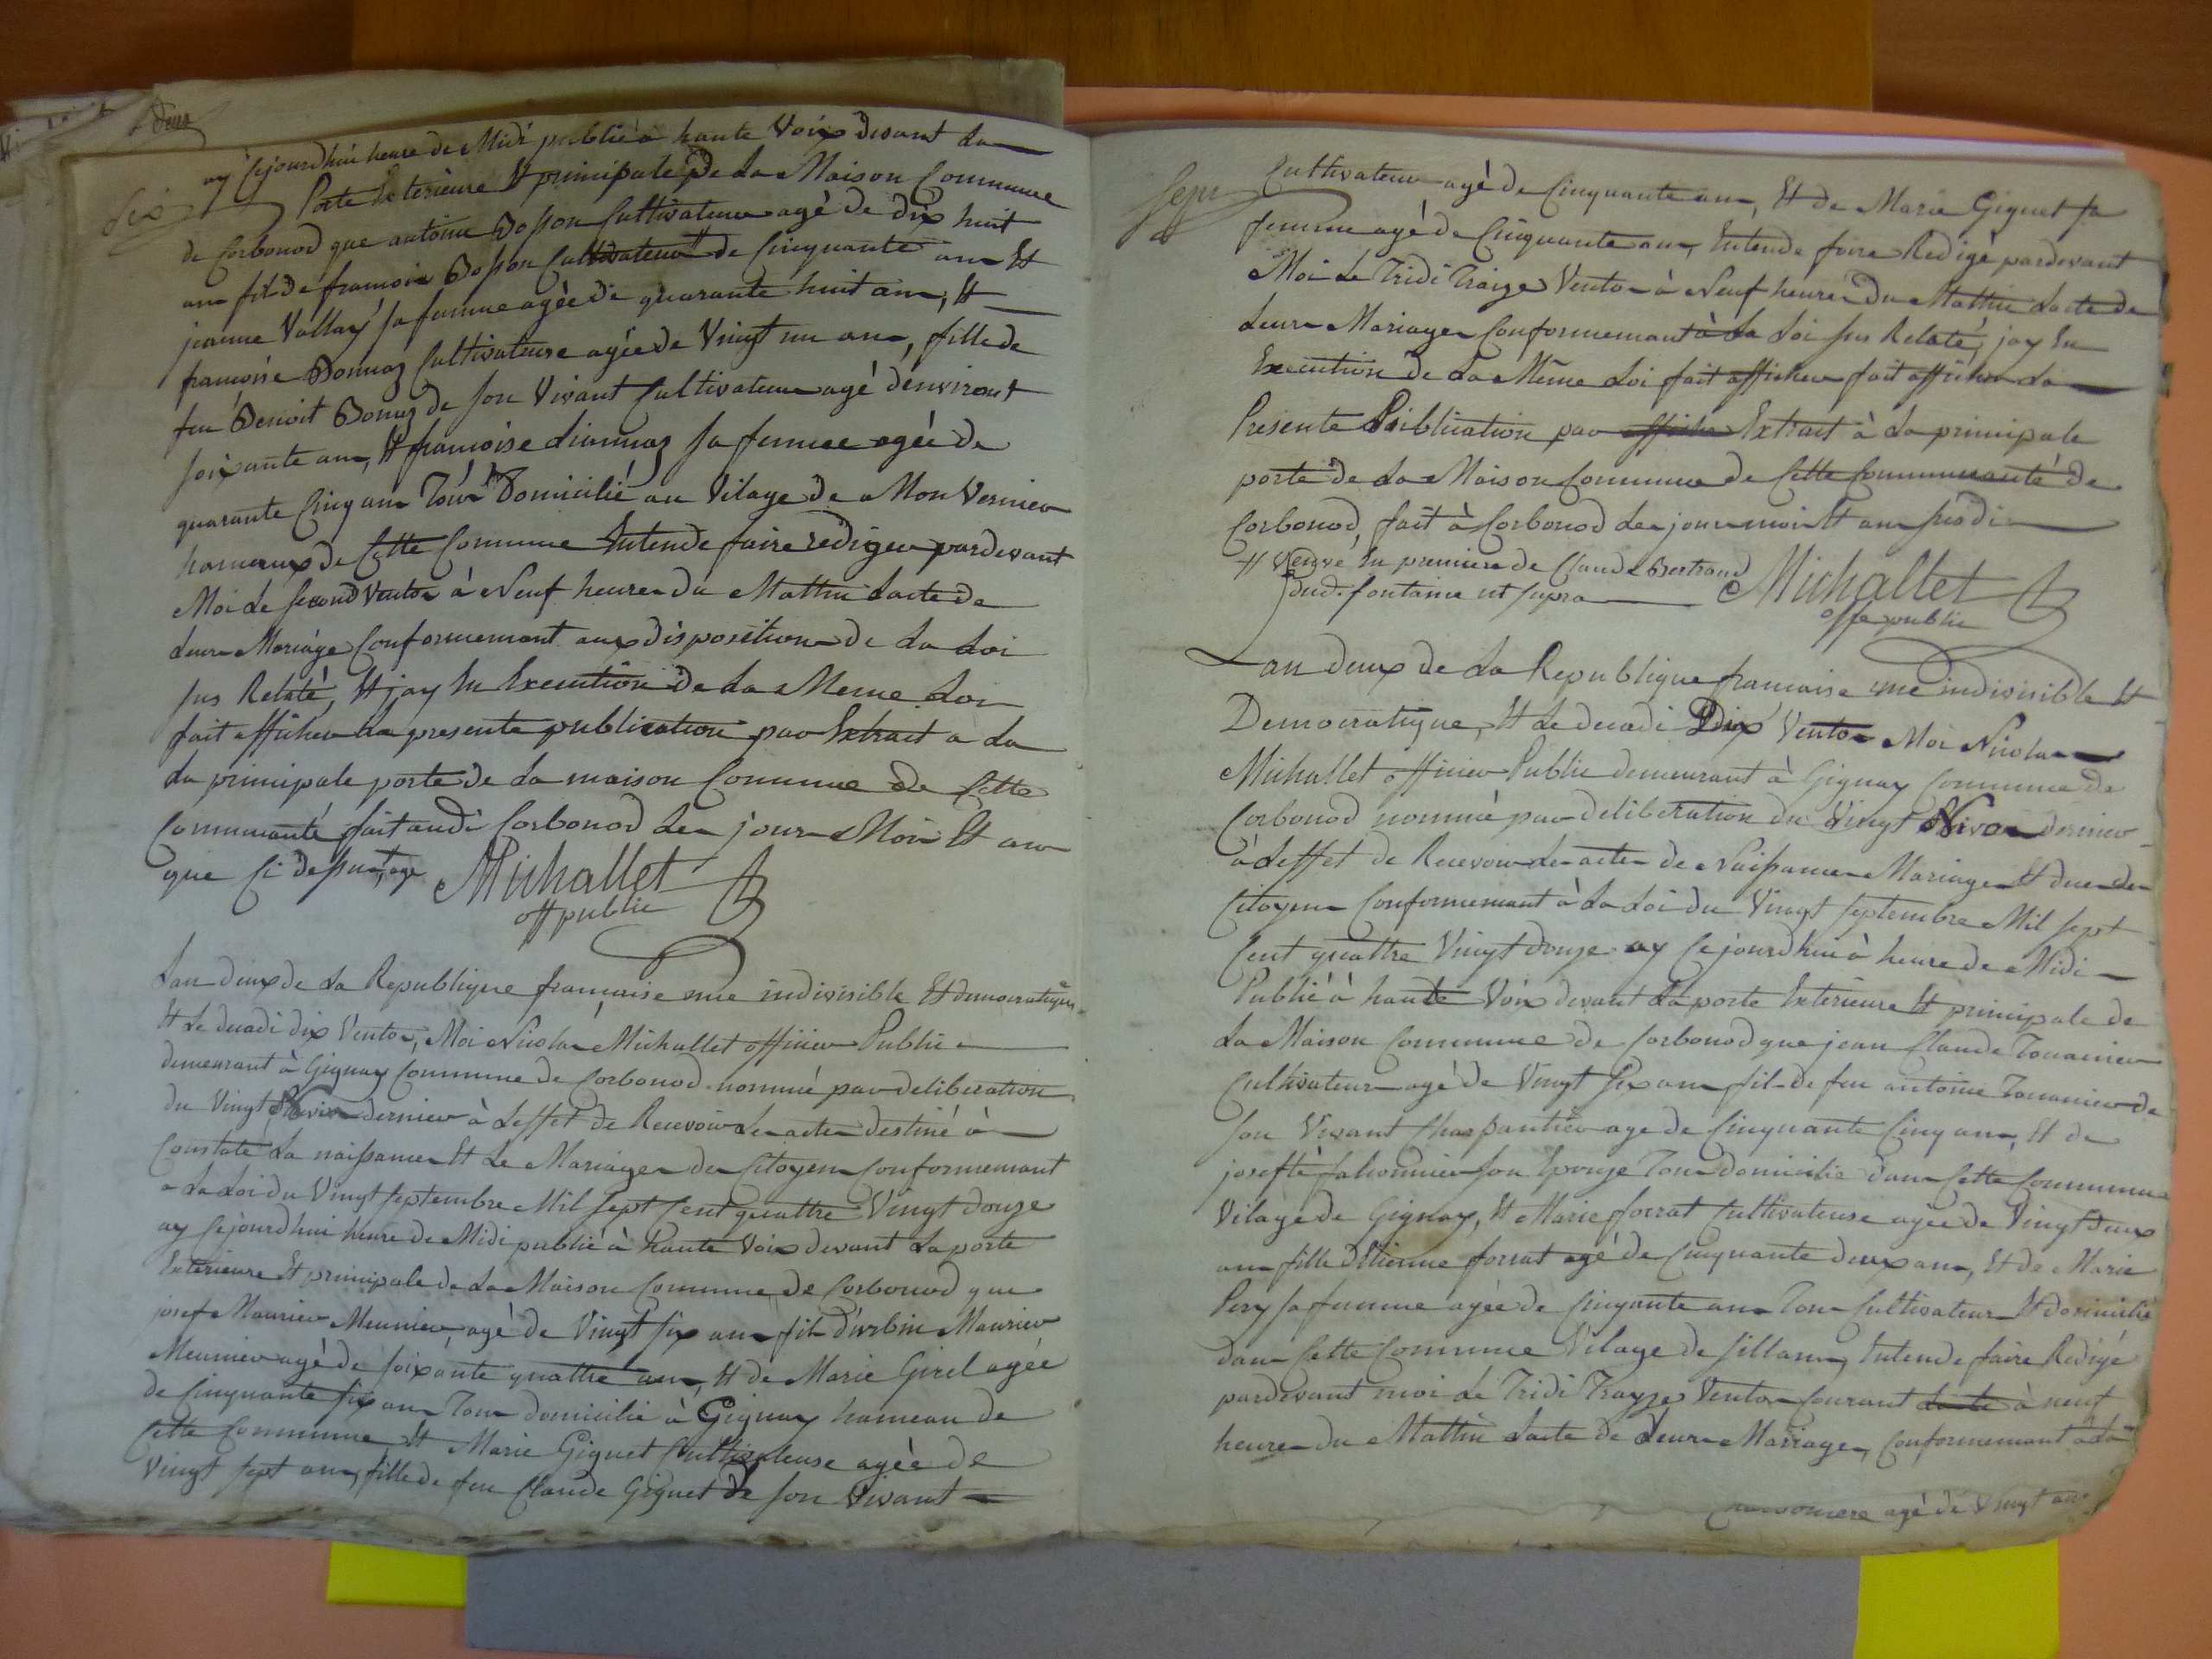 deux
Six
ay cejourdhui heure de Midi publié à haute Voix devant La
Porte Exterieure Et principale De La Maison Commune
de Corbonod que antoine Bosson Cultivateur agé de dix huit
ans fils de francois Bosson Cultivateur de Cinquante ans Et
jeanne Vallay sa femme agée de quarante huit ans, Et
francoise Bonnaz Cultivateure agée de Vingt un ans, fille de
feu Benoit Bonnaz de son Vivant Cultivateur agé d'environt
soixante ans, Et francoise Liannaz sa femme agée de
quarante Cinq ans Tous Domicilié au Vilage de Mon Vernier
hameaux de Cette Commune Entende faire rediger pardevant
Moi Le second Ventos à Neuf heures du Mattin Lacte de
Leurs Mariage Conformement aux dispositions de La Loi
sus Relaté, Et jay En Execution de La Meme Loi
fait afficher La presente publication par Extrait a La
La principale porte de La maison Commune de Cette
Communauté fait audi Corbonod Les jours Mois Et an
que Ci dessus,
Michallet
off public
Lan deux de La Republique francaise une indivisible Et democratique
Et Le decadi dix Ventos, Moi Nicolas Michallet officier Public
demeurant à Gignay Commune de Corbonod nommé par deliberation
du Vingt Nivos dernier à Leffet de Recevoir Les actes destiné à
Constaté La naissances Et Le Mariages des Citoyens Conformement
a La Loi du Vingt septembre Mil sept Cent quattre Vingt douze
ay cejourdhui heure de Midi publié à haute Voix devant La porte
Exterieure Et principale de La Maison Commune de Corbonod que
josef Maurier Meunier, agé de Vingt six ans fils d'urbin Maurier
Meunier agé de soixante quattre ans, Et de Marie Girel agée
de Cinquante six ans Tous domicilié à Gignay hameau de
Cette Commune Et Marie Giguet Cultivateuse agée de
Vingt sept ans, fille de feu Claude Giguet de son Vivant
Sept
Cultivateur agé de Cinquante ans, Et de Marie Giguet sa
femme agé de Cinquante ans, Entende faire Redigé pardevant
Moi Le Tridi Traize Ventos à Neuf heures Du Mattin Lacte de
Leurs Mariages Conformemant à La Loi sus Relaté, jay En
Execution de La Même Loi fait afficher fait afficher La
Presente Publication par affiche Extrait à La principale
porte de La Maison Commune de Cette Communauté de
Corbonod, fait à Corbonod Les jours mois Et an susdi
H Veuve En premiere de Claude Bertrand
dud. fontaine ut supra
Michallet
offe public
Lan deux de La Republique francaise une indivisible Et
Democratique, Et Le decadi Dix Ventos Moi Nicolas
Michallet officier Public demeurant à Gignay Commune de
Corbonod nommé par deliberation du Vingt Nivos dernier
à Leffet de Recevoir Les actes de Naissances Mariages Et duces des
Citoyens Conformemant à La Loi du Vingt septembre Mil sept
Cent quattre Vingt douze ay Cejourdhui à heure de Midi
Publié à haute Voix devant La porte Exterieure Et principale de
La Maison Commune de Corbonod que jean Claude Touanier
Cultivateur agé de Vingt six ans fils de feu antoine Touanier de
son Vivant Charpantier age de Cinquante Cinq ans, Et de
josefte falconnier son Epouze Tous domicilie dans Cette Commune
Vilage de Gignay, Et Marie forrat Cultivateuse agée de Vingt deux
ans fille d'Etienne forrat agé de Cinquante deux ans, Et de Marie
Pery sa femme agée de Cinqante ans Tous Cultivateurs Et domicilié
dans Cette Commune Vilage de sillans, Entende faire Redigé
pardevant moi Le Tridi Trayze Ventos Courant Lacte à neuf
heures du Mattin Lacte de Leurs Mariages, Conformemant à La
agé de Vingt ans